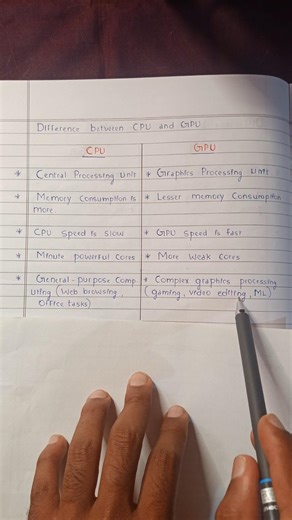 Difference between CPU and GPU
CPU
GPU
* Central Processing Unit
* Graphics Processing Unit
* Memory Consumption is
more
* Lesser memory Consumption
* CPU Speed is Slow
* GPU Speed is fast
* Minute powerful Cores
* More Weak Cores
* General-purpose Comp
uting (Web browsing,
Office tasks)
* Complex graphics processing
(gaming, video editing, ML)